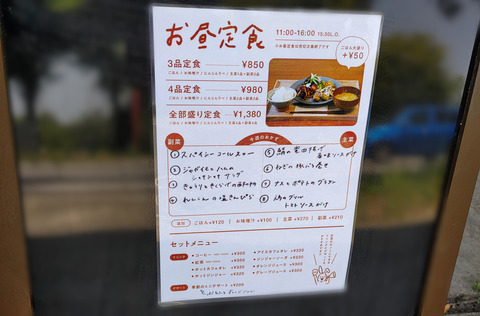 お昼定食
11:00-16:00 15:30L.O.
ごはん大盛り
+¥50
3品定食 ¥850
4品定食 ¥980
全部盛り定食 ¥1,380
副菜
今週のおかず
主菜
① スパイシーコールスロー
②
シャキシャキサラダ
③ きゅうりときくらげの酢の物
④ れんこんの塩きんぴら
⑤ 鯖の竜田揚げ
香味ソースがけ
⑥ ねぎの豚バラ巻き
⑦ ナスとポテトのグラタン
⑧ 鶏のグリル
トマトソースがけ
追加 ごはん +¥120 お味噌汁 +¥100 主菜 +¥270 副菜 +¥210
セットメニュー
ドリンク
• コーヒー +¥300
• 紅茶 +¥300
• ホットカフェオレ +¥350
• ホットジンジャー +¥350
• アイスカフェオレ +¥350
• ジンジャーソーダ +¥350
• オレンジジュース +¥300
• グレープジュース +¥300
デザート 季節のミニデザート +¥200